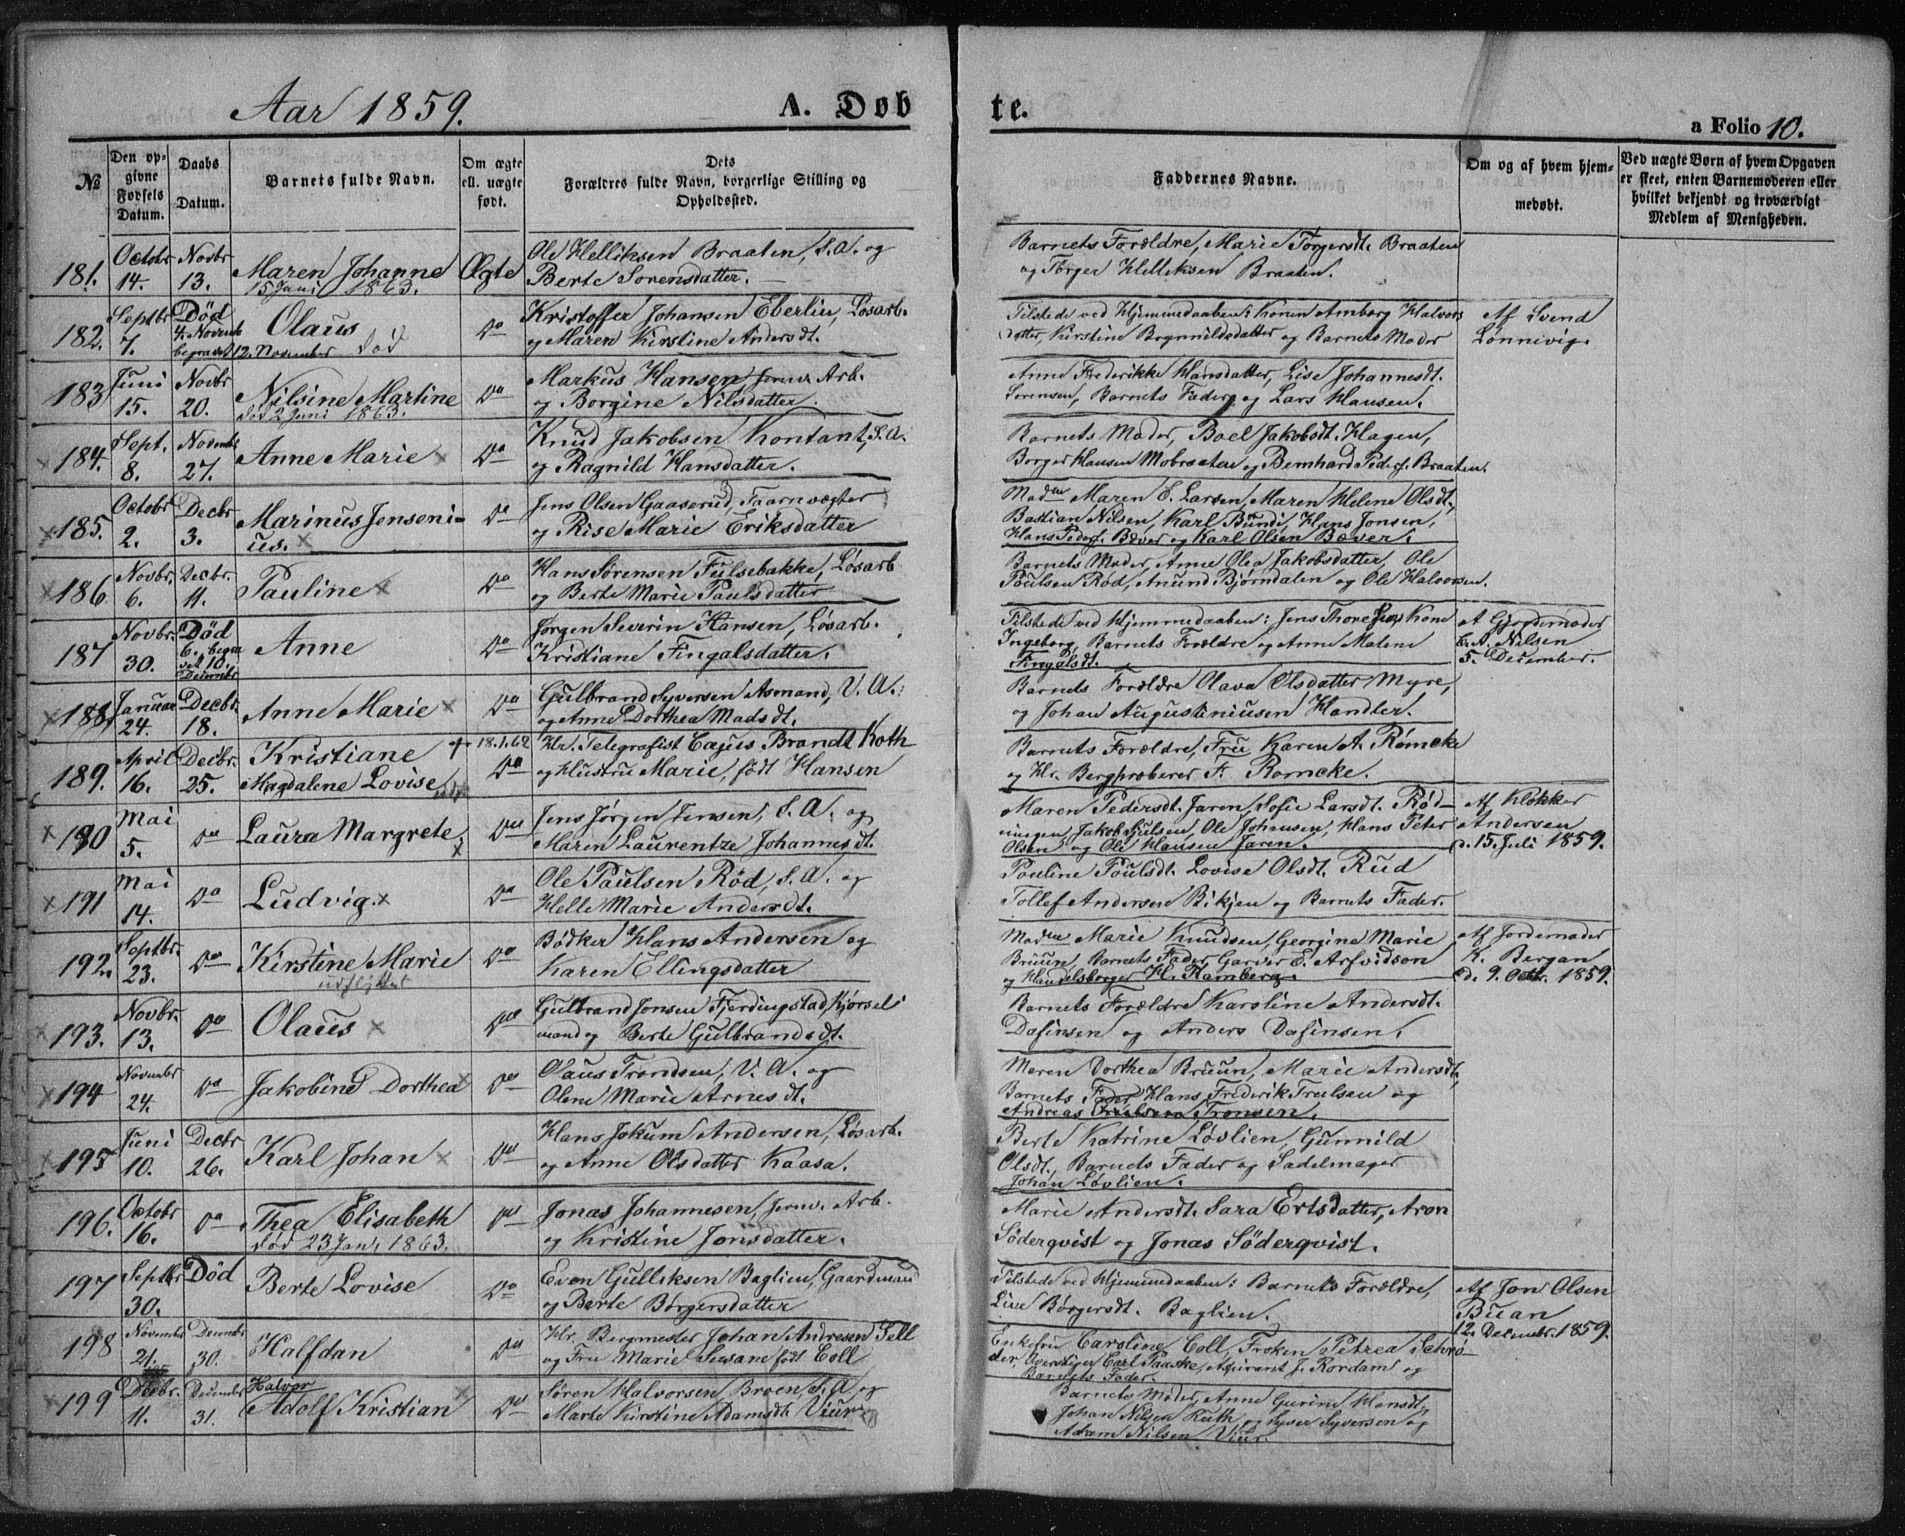 Aar 1859.
A. Døb
te.
a Folio 10.
№
Den opgivne Fødsels Datum.
Daabs Datum.
Barnets fulde Navn.
Om ægte ell. uægte født.
Dets Forældres fulde Navn, borgerlige Stilling og Opholdssted.
Faddernes Navne.
Om og af hvem hjemmedøbt.
Ved uægte Børn af hvem Opgaven er skeet, enten Barnemoderen eller hvilket bekjendt og troværdigt Medlem af Menigheden.
181. Octobr 14. Novbr 13. Maren Johanne Ægte Ole Helliksen Braaten, S.A. og
15 Juni 1863. Berte Sørensdatter.
Barnets Forældre, Marie Torgersdt. Braaten
og Torger Helliksen Braaten.
182. Septbr 7. Død 4. Novemb begravet 12. November Olaus død Do Kristoffer Johansen Eberlin, Løsarb.
og Maren Kirstine Andersdt.
Tilstede ved Hjemmedaaben: Konen Amborg Halvors
datter, Kirstine Brynnildsdatter og Barnets Moder
Af Svend
Lønnivig.
183 Juni 15. Novbr 20. Nilsine Martine Do Markus Hansen, Jernv. Arb.
død 2 Juni 1863. og Borgine Nilsdatter.
Anne Frederikke Hansdatter, Lise Johannesdt.
Sørensen, Barnets Fader og Lars Hansen.
184. Sept. 8. Novemb 27. Anne Marie Do Knud Jakobsen Kontant, S.A.
og Ragnild Hansdatter.
Barnets Moder, Boel Jakobsdt. Hagen,
Borger Hansen Mobraaten og Bernhard Peders. Braaten.
185. Octobr 2. Decbr 3. Marinus Jenseni- Do Jens Olsen Gaaserud, Taarnvægter
us. og Rise Marie Eriksdatter
Madm Maren E. Larsen, Maren Helene Olsdt.
Bastian Nilsen, Karl Bündi, Hans Jonsen,
Hans Peders. Bæver og Karl Olsen Bæver.
186 Novbr. 6. Decbr. 11. Pauline Do Hans Sørensen Fulsebakke, Løsarb
og Berte Marie Paulsdatter
Barnets Moder, Anne Olea Jakobsdatter, Ole
Poulsen Rød, Anund Bjørndalen og Ole Halvorsen.
187 Novbr. 30. Død 6. begra vet 10. Decembr Anne Do Jørgen Severin Hansen, Løsarb.
Kristiane Fingalsdatter.
Tilstede ved Hjemmedaaben: Jens Thoresens Kone
Ingeborg, Barnets Forældre og Anne Malene
Fingalsdt.
A Gjordemoder
C. A. Nilsen
5. December.
188. Januar 24. Decbr. 18. Anne Marie Do Gulbrand Syversen Asmand, V.A.
og Anne Dorthea Madsdt.
Barnets Forældre Olava Olsdatter Myre,
og Johan Augustiniusen Handler.
189. April 16. Decbr. 25. Kristiane + 18.1.62 Hr. Telegrafist Cajus Brandt Koth
Magdalene Lovise Do og Hustru Marie, født Hansen
Barnets Forældre, Fru Karen A. Rømcke
og Hr. Bergprøberer F. Romcke.
190 Mai 5. Do Laura Margrete Do Jens Jørgen Jensen, S.A. og
Maren Laurentze Johannesdt.
Maren Pedersdt. Jaren, Sofie Larsdt. Rød-
ningen, Jakob Hjulsen, Ole Johansen, Hans Peter
Olsen og Ole Hansen Jaren.
Af Klokker
Andersen
d. 15. Juli 1859.
191 Mai 14. Do Ludvig. Do Ole Paulsen Rød, S.A. og
Helle Marie Andersdt.
Pouline Poulsdt. Lovise Olsdt. Rud
Tollef Andersen Bikjen og Barnets Fader.
192. Septbr. 23. Do Kirstine Marie Do Bødker Hans Andersen og
udflyttet Karen Ellingsdatter
Madm Marie Knudsen, Georgine Marie
Bruun, Barnets Fader, Garver E. Arfvidson
og Handelsborger H. Ramberg.
Af Jordemoder
K. Bergan
d. 9. Octbr. 1859.
193. Novbr. 13. Do Olaus Do Gulbrand Jonsen Fjerdingstad, Kjørsel
mand og Berte Gulbrandsdt.
Barnets Forældre Karoline Andersdt.
Dofinsen og Anders Dofinsen.
194 November 24. Do Jakobine Dorthea Do Olaus Trondsen, V.A. og
Olene Marie Arnesdt.
Maren Dorthea Bruun, Marie Andersdt.
Barnets Fader, Hans Frederik Trulsen og
Andreas Tronsen.
195 Juni 10. Decbr 26. Karl Johan Do Hans Jokum Andersen, Løsarb.
og Anne Olsdatter Kaasa.
Berte Katrine Løvlien, Gunnild
Olsdt., Barnets Fader og Sadelmager
Johan Løvlien.
196. Octobr 16. Do Thea Elisabeth Do Jonas Johannesen, Jernv. Arb.
død 23 Jan. 1863. og Kristine Jonsdatter.
Marie Andersdt. Sara Ertsdatter, Aron
Söderqvist og Jonas Söderqvist.
197 Septbr 30. Død Berte Lovise Do Even Gulliksen Baglien, Gaardmand
og Berte Børgersdatter
Tilstede ved Hjemmedaaben: Barnets Forældre,
Line Børgersdt. Baglien.
Af Jon Olsen
Buan
12. Decembr. 1859.
198 November 21. Decembr 30. Halfdan Do Hr. Bergmester Johan Andresen Tell
og Fru Marie Susane født Coll
Enkefru Caroline Coll, Frøken Petrea Schrø-
der, Overstiger Carl Paaske, Aspirant J. Rordam og
Barnets Fader.
199 Decbr. 11. Decembr 31. Halvor
Adolf Kristian Do Søren Halvorsen Broen S.A. og
Marte Kirstine Adamsdt. Viur
Barnets Moder, Anne Gurine Hansdt.,
Johan Nilsen Ruth og Syver Syversen og
Adam Nilsen Viur.